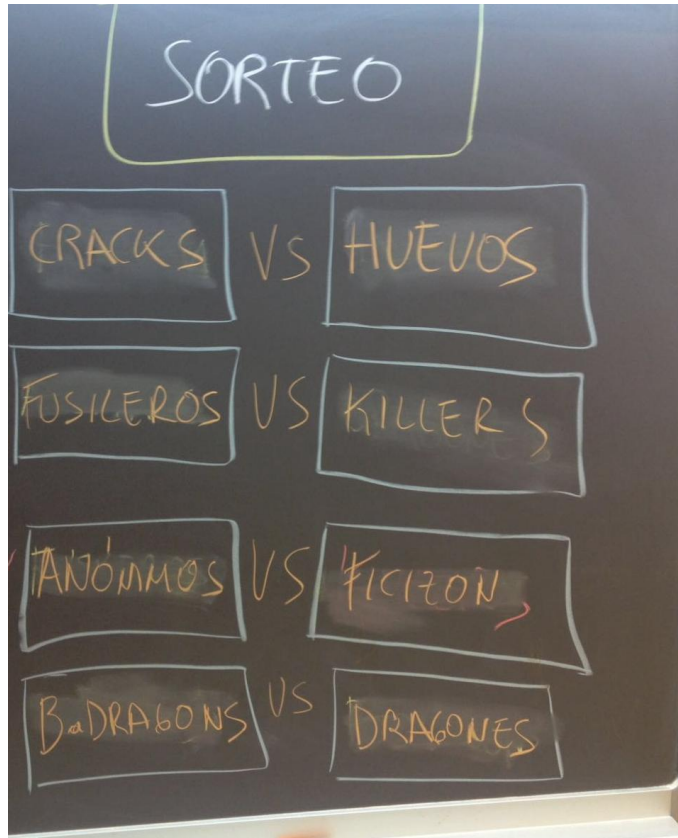 SORTEO
CRACKS VS HUEVOS
FUSILEROS VS KILLERS
ANÓNIMOS VS FICIZON
BaDRAGONS VS DRAGONES